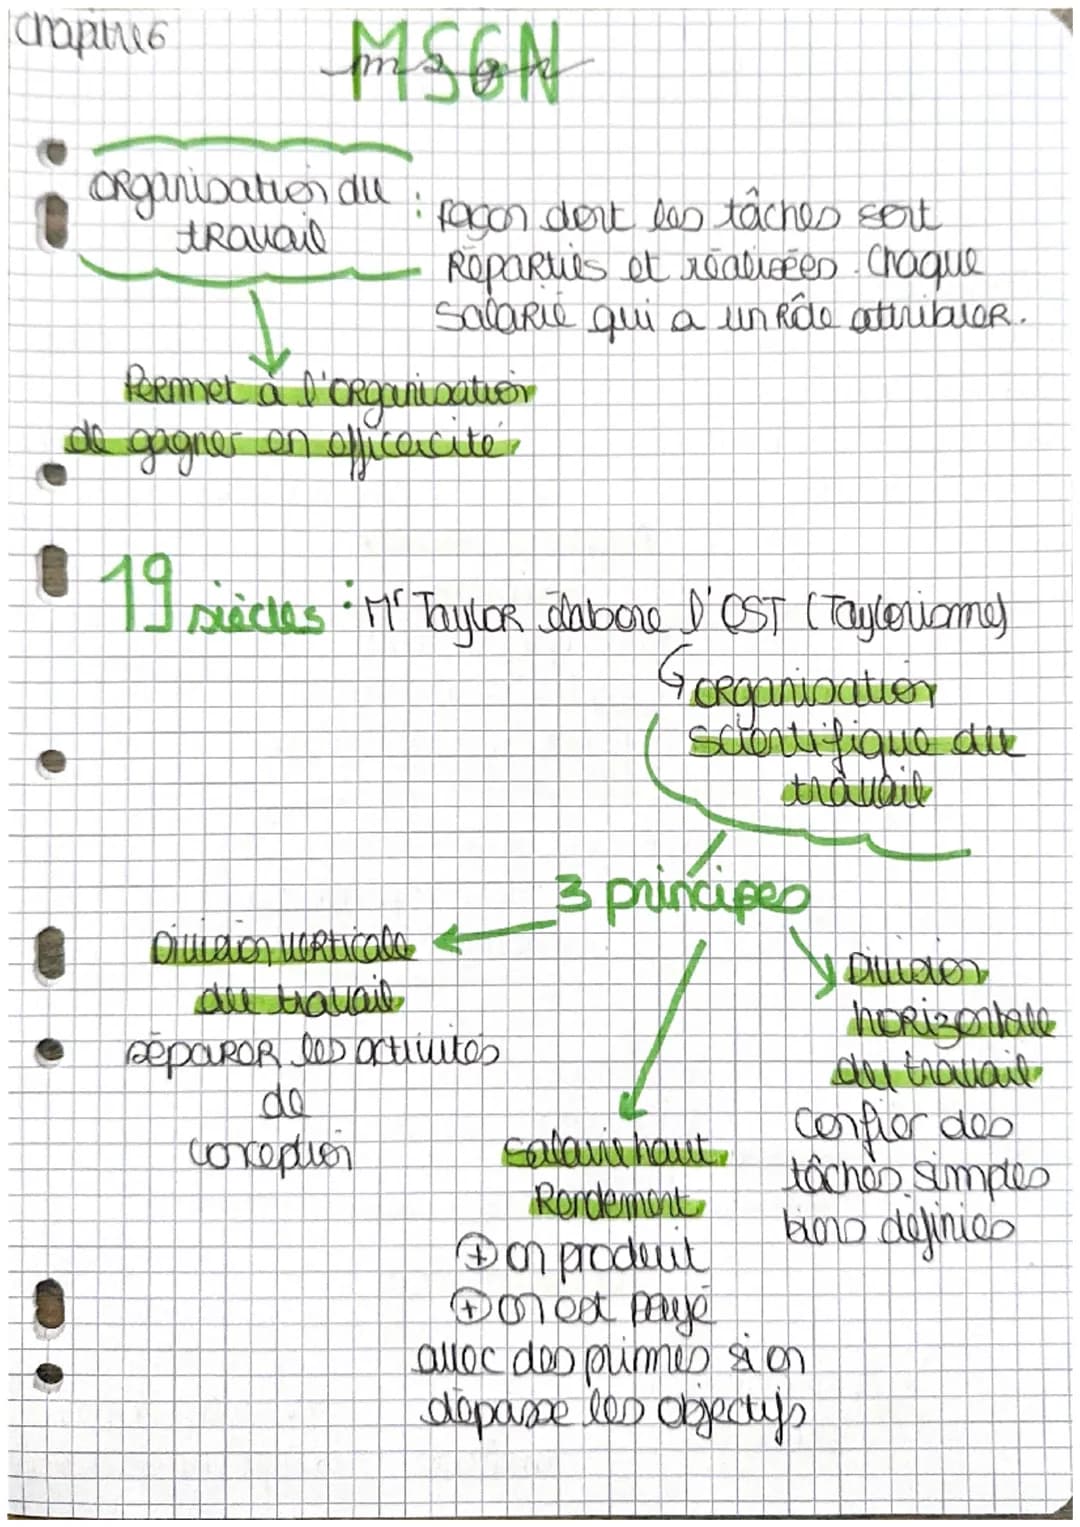 Chapitre 6
MSGN
msgn
Organisation du
travail
: façon dont les tâches sont
Réparties et réalisées. Chaque
Salarié qui a un Rôle attribuer.
Permet à l'organisation
de gagner en efficacité
19 siècles : Mr Taylor élabore l'OST (Taylorisme)
organisation
scientifique du
travail
3 principes
Division verticale
du travail
séparer les activités
de
conception
Division
horizontale
du travail
confier des
tâches simples
biens définies
Salaire haut
Rendement
+ on produit
+ on est payé
avec des primes si on
dépasse les objectifs